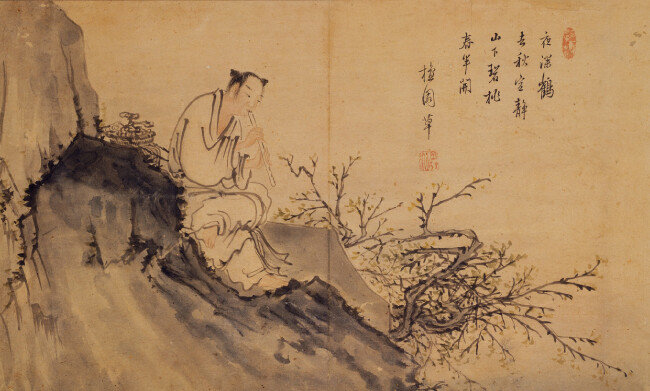 夜深鶴
去秋空靜
山下碧桃
春半開
檀園草